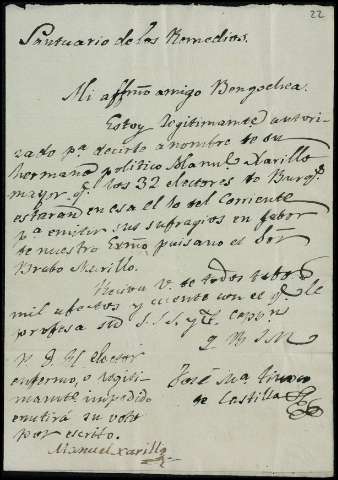 22
Santuario de los Remedios.
Mi affmo amigo Bengoechea.
Estoy legitimamte autori-
zado pa. decirle a nombre de su
hermano politico Manuel Xarillo
mayor, q. los 32 electores de Burg
estarán en esa el 10 del Corriente
pa. emitir sus sufragios en fabor
de nuestro Exmo paisano el Sor.
Brabo Murillo.
Reciva V. de todos
mil afectos y cuente con el q. le
profesa su S. S. y
q B S M
José Ma.
de Castilla
P. D. El elector
enfermo, o legiti-
mamte impedido
emitirá su voto
por escrito.
Manuel Xarillo